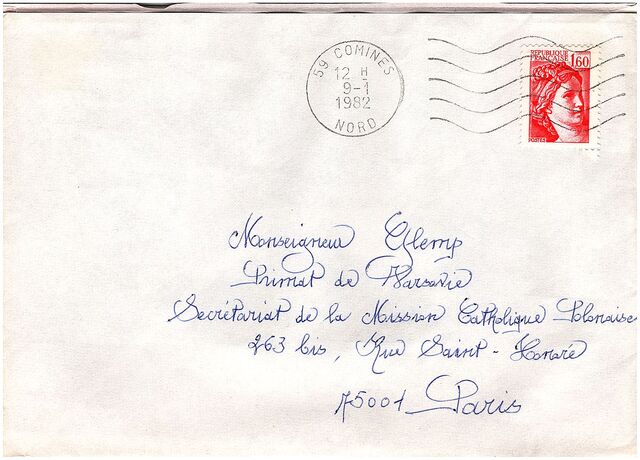 59 COMINES
12 H
9-1
1982
NORD
REPUBLIQUE
FRANÇAISE
1,60
POSTES
Monseigneur Glemp
Primat de Varsovie
Secrétariat de la Mission Catholique Polonaise
263 bis, Rue Saint-Honoré
75001 Paris